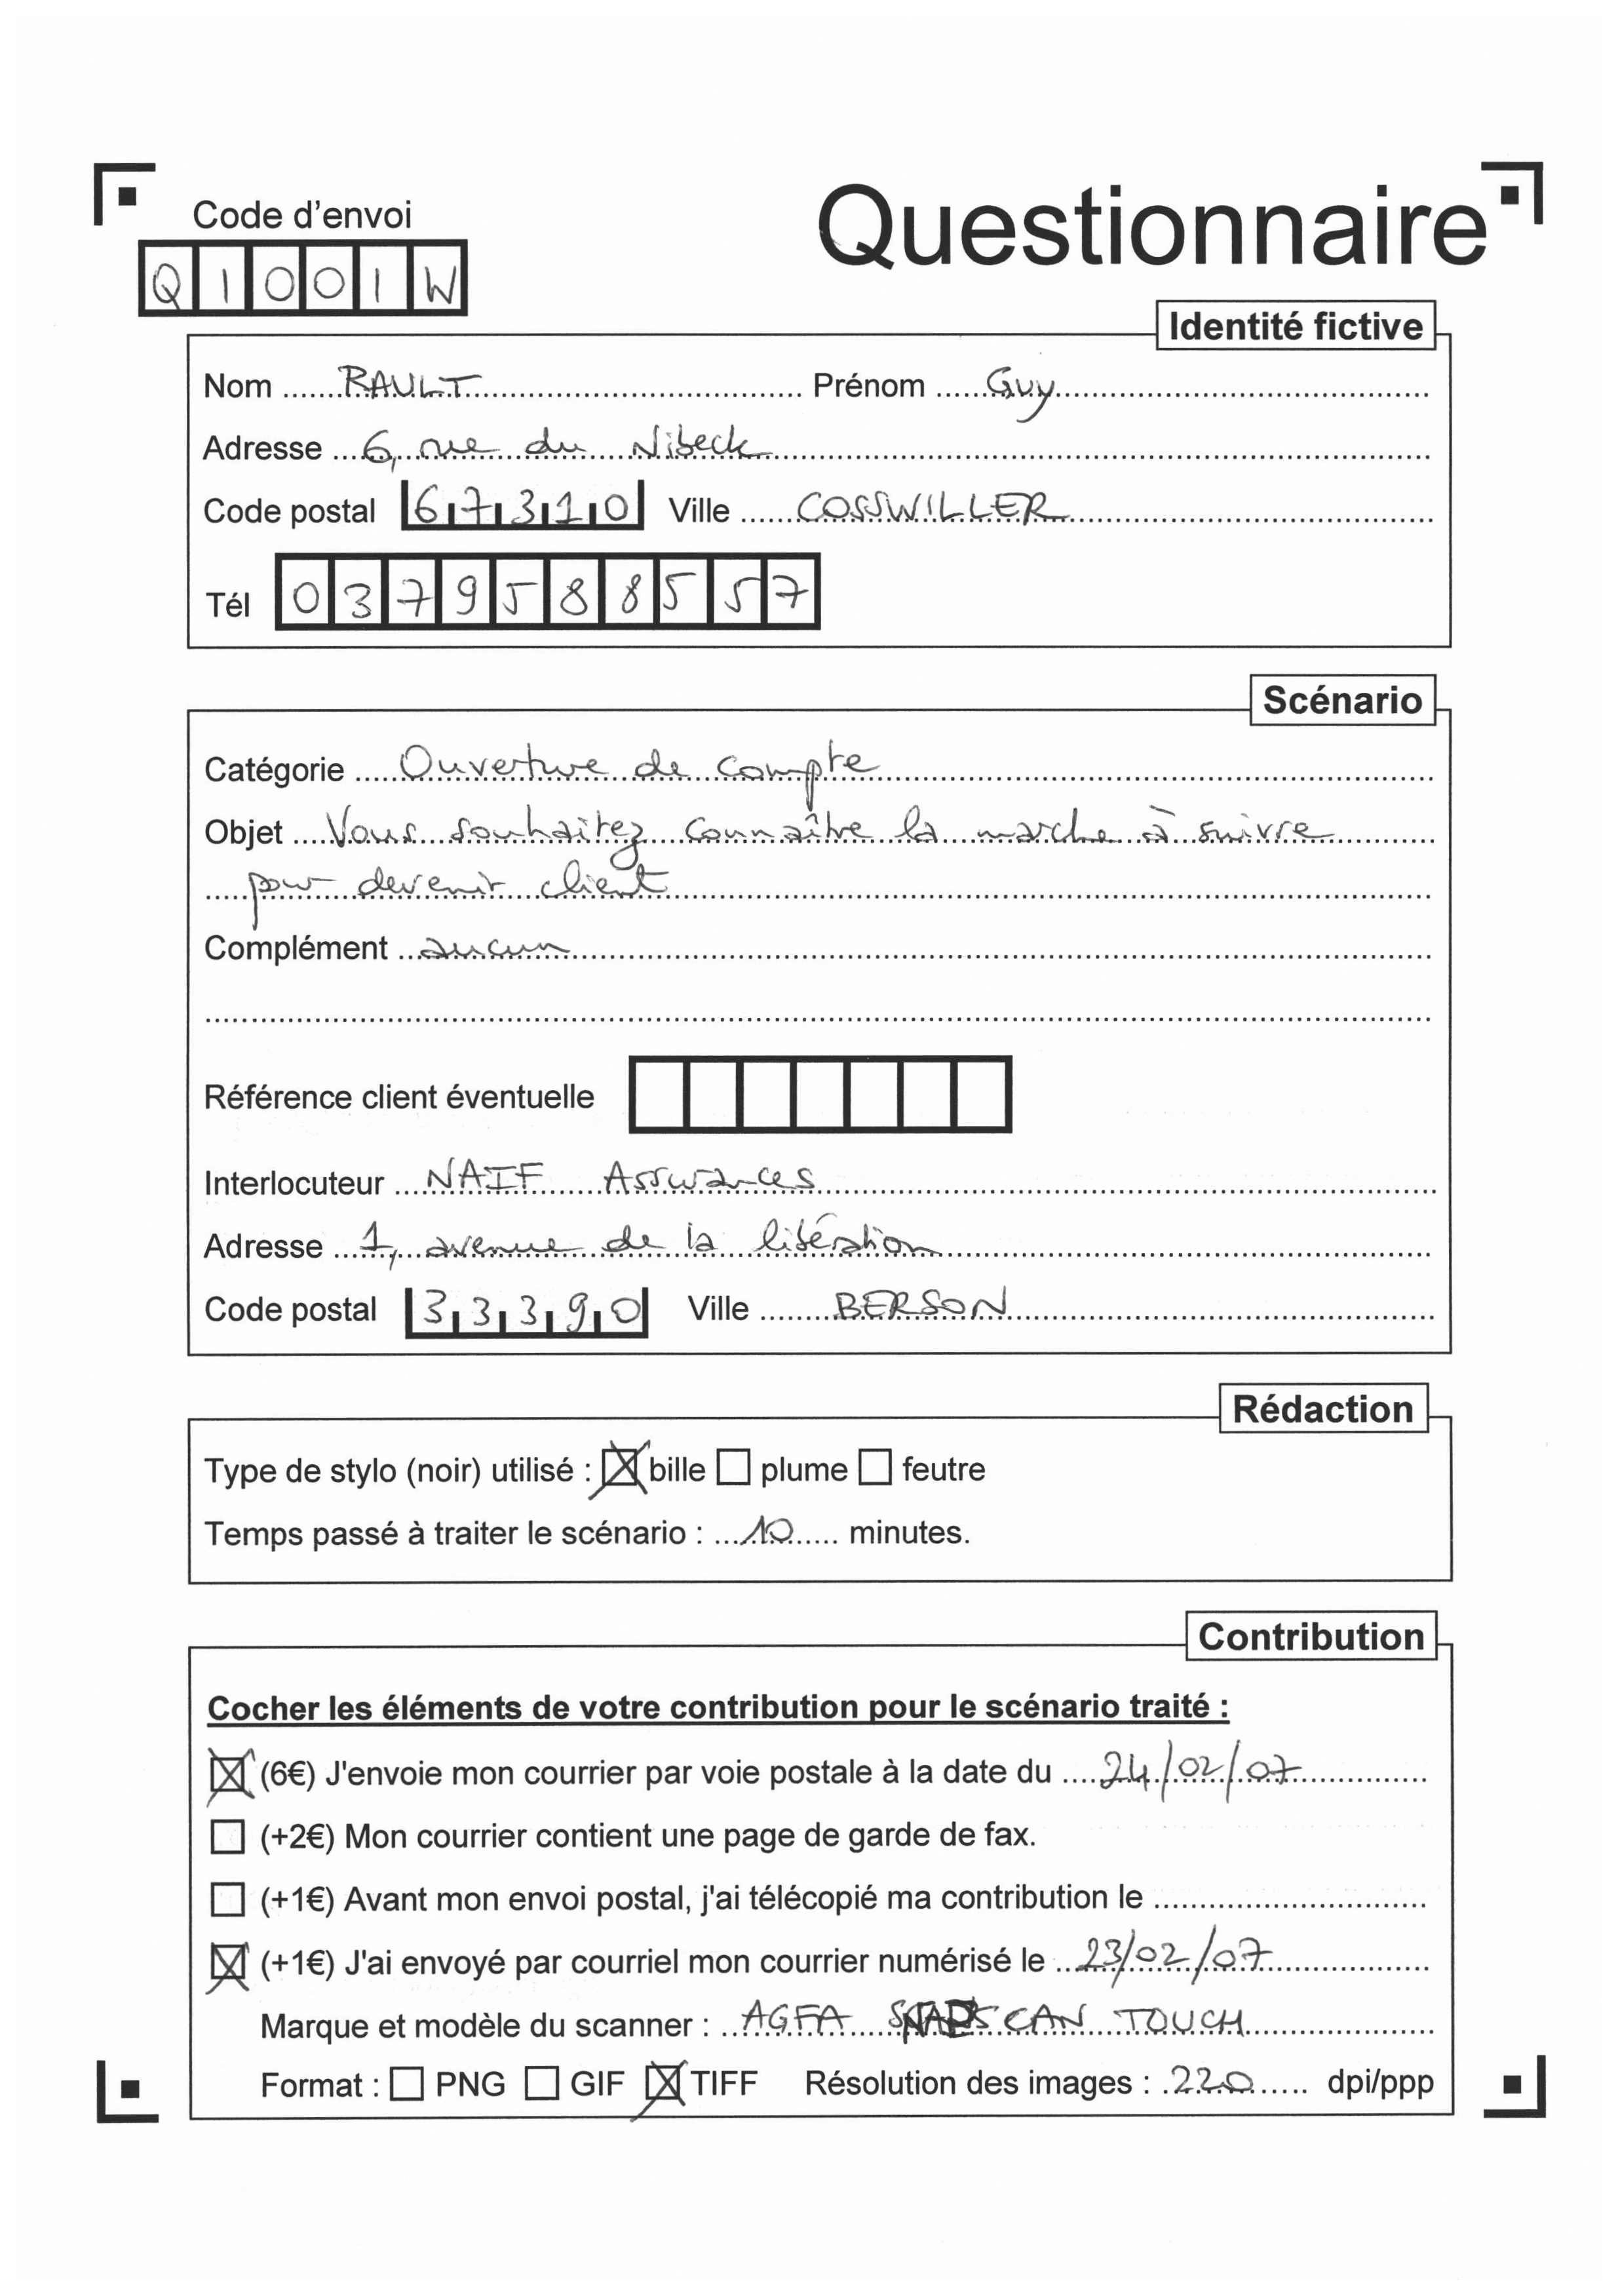 Code d'envoi
Questionnaire
Q1001W
Identité fictive
Nom RAULT Prénom Guy
Adresse 6, rue du Nibeck
Code postal 67310 Ville COSSWILLER
Tél 0379588557
Scénario
Catégorie Ouverture de compte
Objet Vous souhaitez connaître la marche à suivre
pour devenir client
Complément aucun
Référence client éventuelle
Interlocuteur NAIF Assurances
Adresse 1, avenue de la libération
Code postal 33390 Ville BERSON
Rédaction
Type de stylo (noir) utilisé : bille plume feutre
Temps passé à traiter le scénario : 10 minutes.
Contribution
Cocher les éléments de votre contribution pour le scénario traité :
(6€) J'envoie mon courrier par voie postale à la date du 24/02/07
(+2€) Mon courrier contient une page de garde de fax.
(+1€) Avant mon envoi postal, j'ai télécopié ma contribution le
(+1€) J'ai envoyé par courriel mon courrier numérisé le 23/02/07
Marque et modèle du scanner : AGFA SNAPSCAN TOUCH
Format : PNG GIF TIFF Résolution des images : 220 dpi/ppp